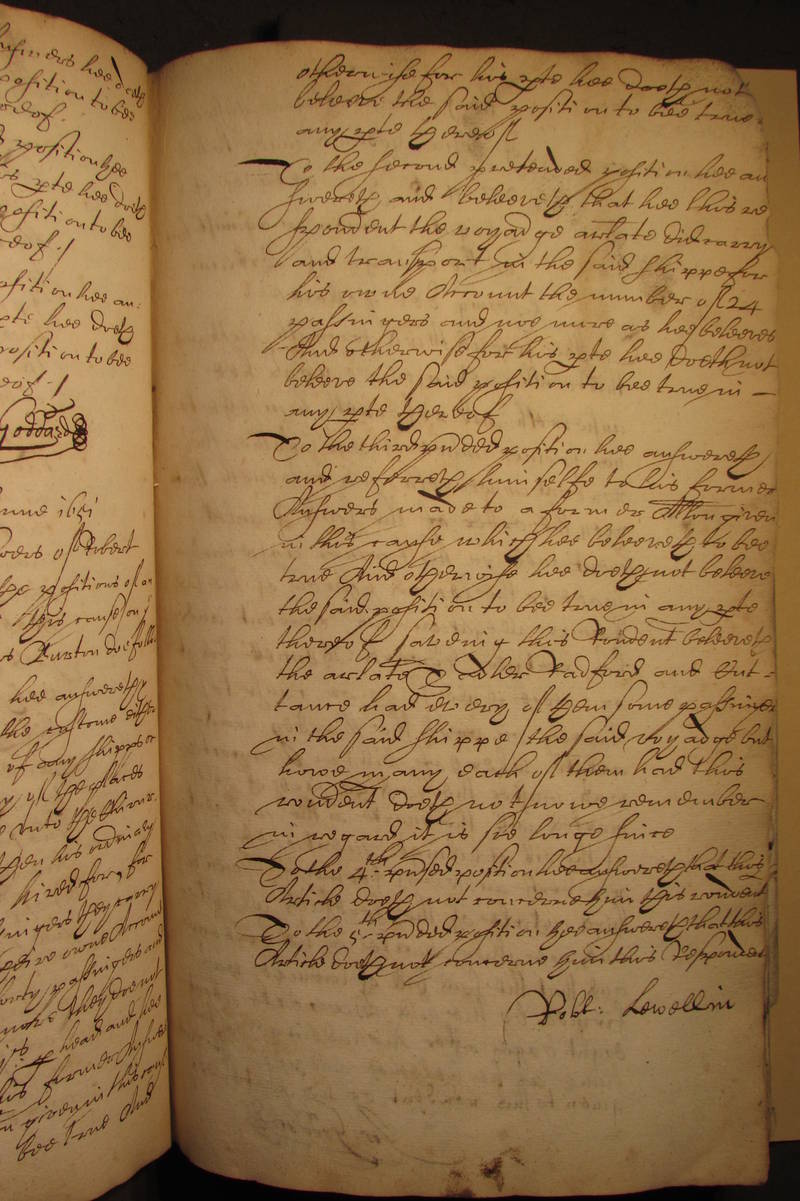 answers hee doth
position to bee
reof.
position hee
his pte hee doth
position to bee
reof ./
position hee an:
pte hee doth
position to bee
eof ./
Goddard
June 1651
wers of Robert
the positions of an
this cause on
rs Burton doe follo
hee answereth
the custome
of any shipp or
of the places
unto the
then his ordinary
hired for, for
ssingers they carry
owne Account
forty passingers and
more they doe not
p head and hee
his former Answers
given in this cause
bee true And
otherwise for his pte hee doeth not
beleeve the said position to bee true
any pte thereof
To the second pretended position hee an
swereth and beleeveth that hee this re
spondent the voyadge arlate did carry
and transport in the said shippe for
his owne Account the number of 24
passingers and noe more as hee beleeves
And otherwise for his pte hee doeth not
beleeve the said position to bee true in
any pte thereof
To the third pnded position hee answereth
and referreth himselfe to his former
Answers made to a former Allon given
in this cause which hee beleeveth to bee
true And otherwise hee doeth not beleeve
the said position to bee true in any pte
thereof saveing this Rondent beleeveth
the arlate Tidler Radford and
tance had every of them some passinger
in the said shippe the said voyadge but
howe many each of them had this
rondent doeth not nowe remember
in regard it is soe longe since
To the 4th pnded position hee answereth that this
Article doeth not concerne him this rondent
To the 5th pnded position hee answereth that this
Article doeth not concerne him this Respondent
Robt: Lewellin